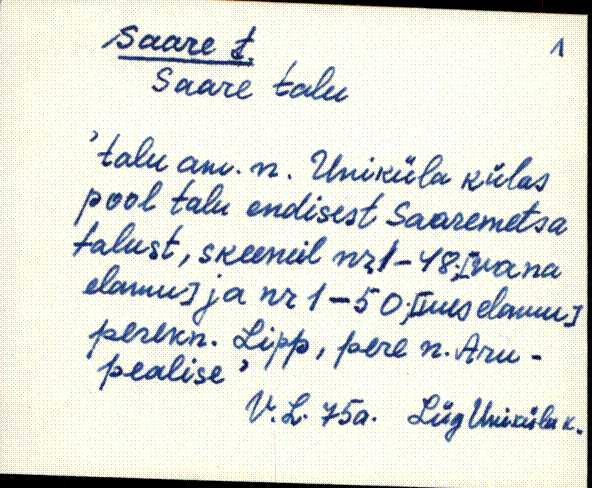 Saare t. 1
Saare talu
'talu am. n. Uniküla külas
pool talu endisest Saaremetsa
talust, skeemil nr 1-48; [vana
elamu] ja nr 1-50; [uus elamu]
perekn. Lipp, pere n. Aru-
pealise'
V. L. 75a. Lüg Uniküla k.